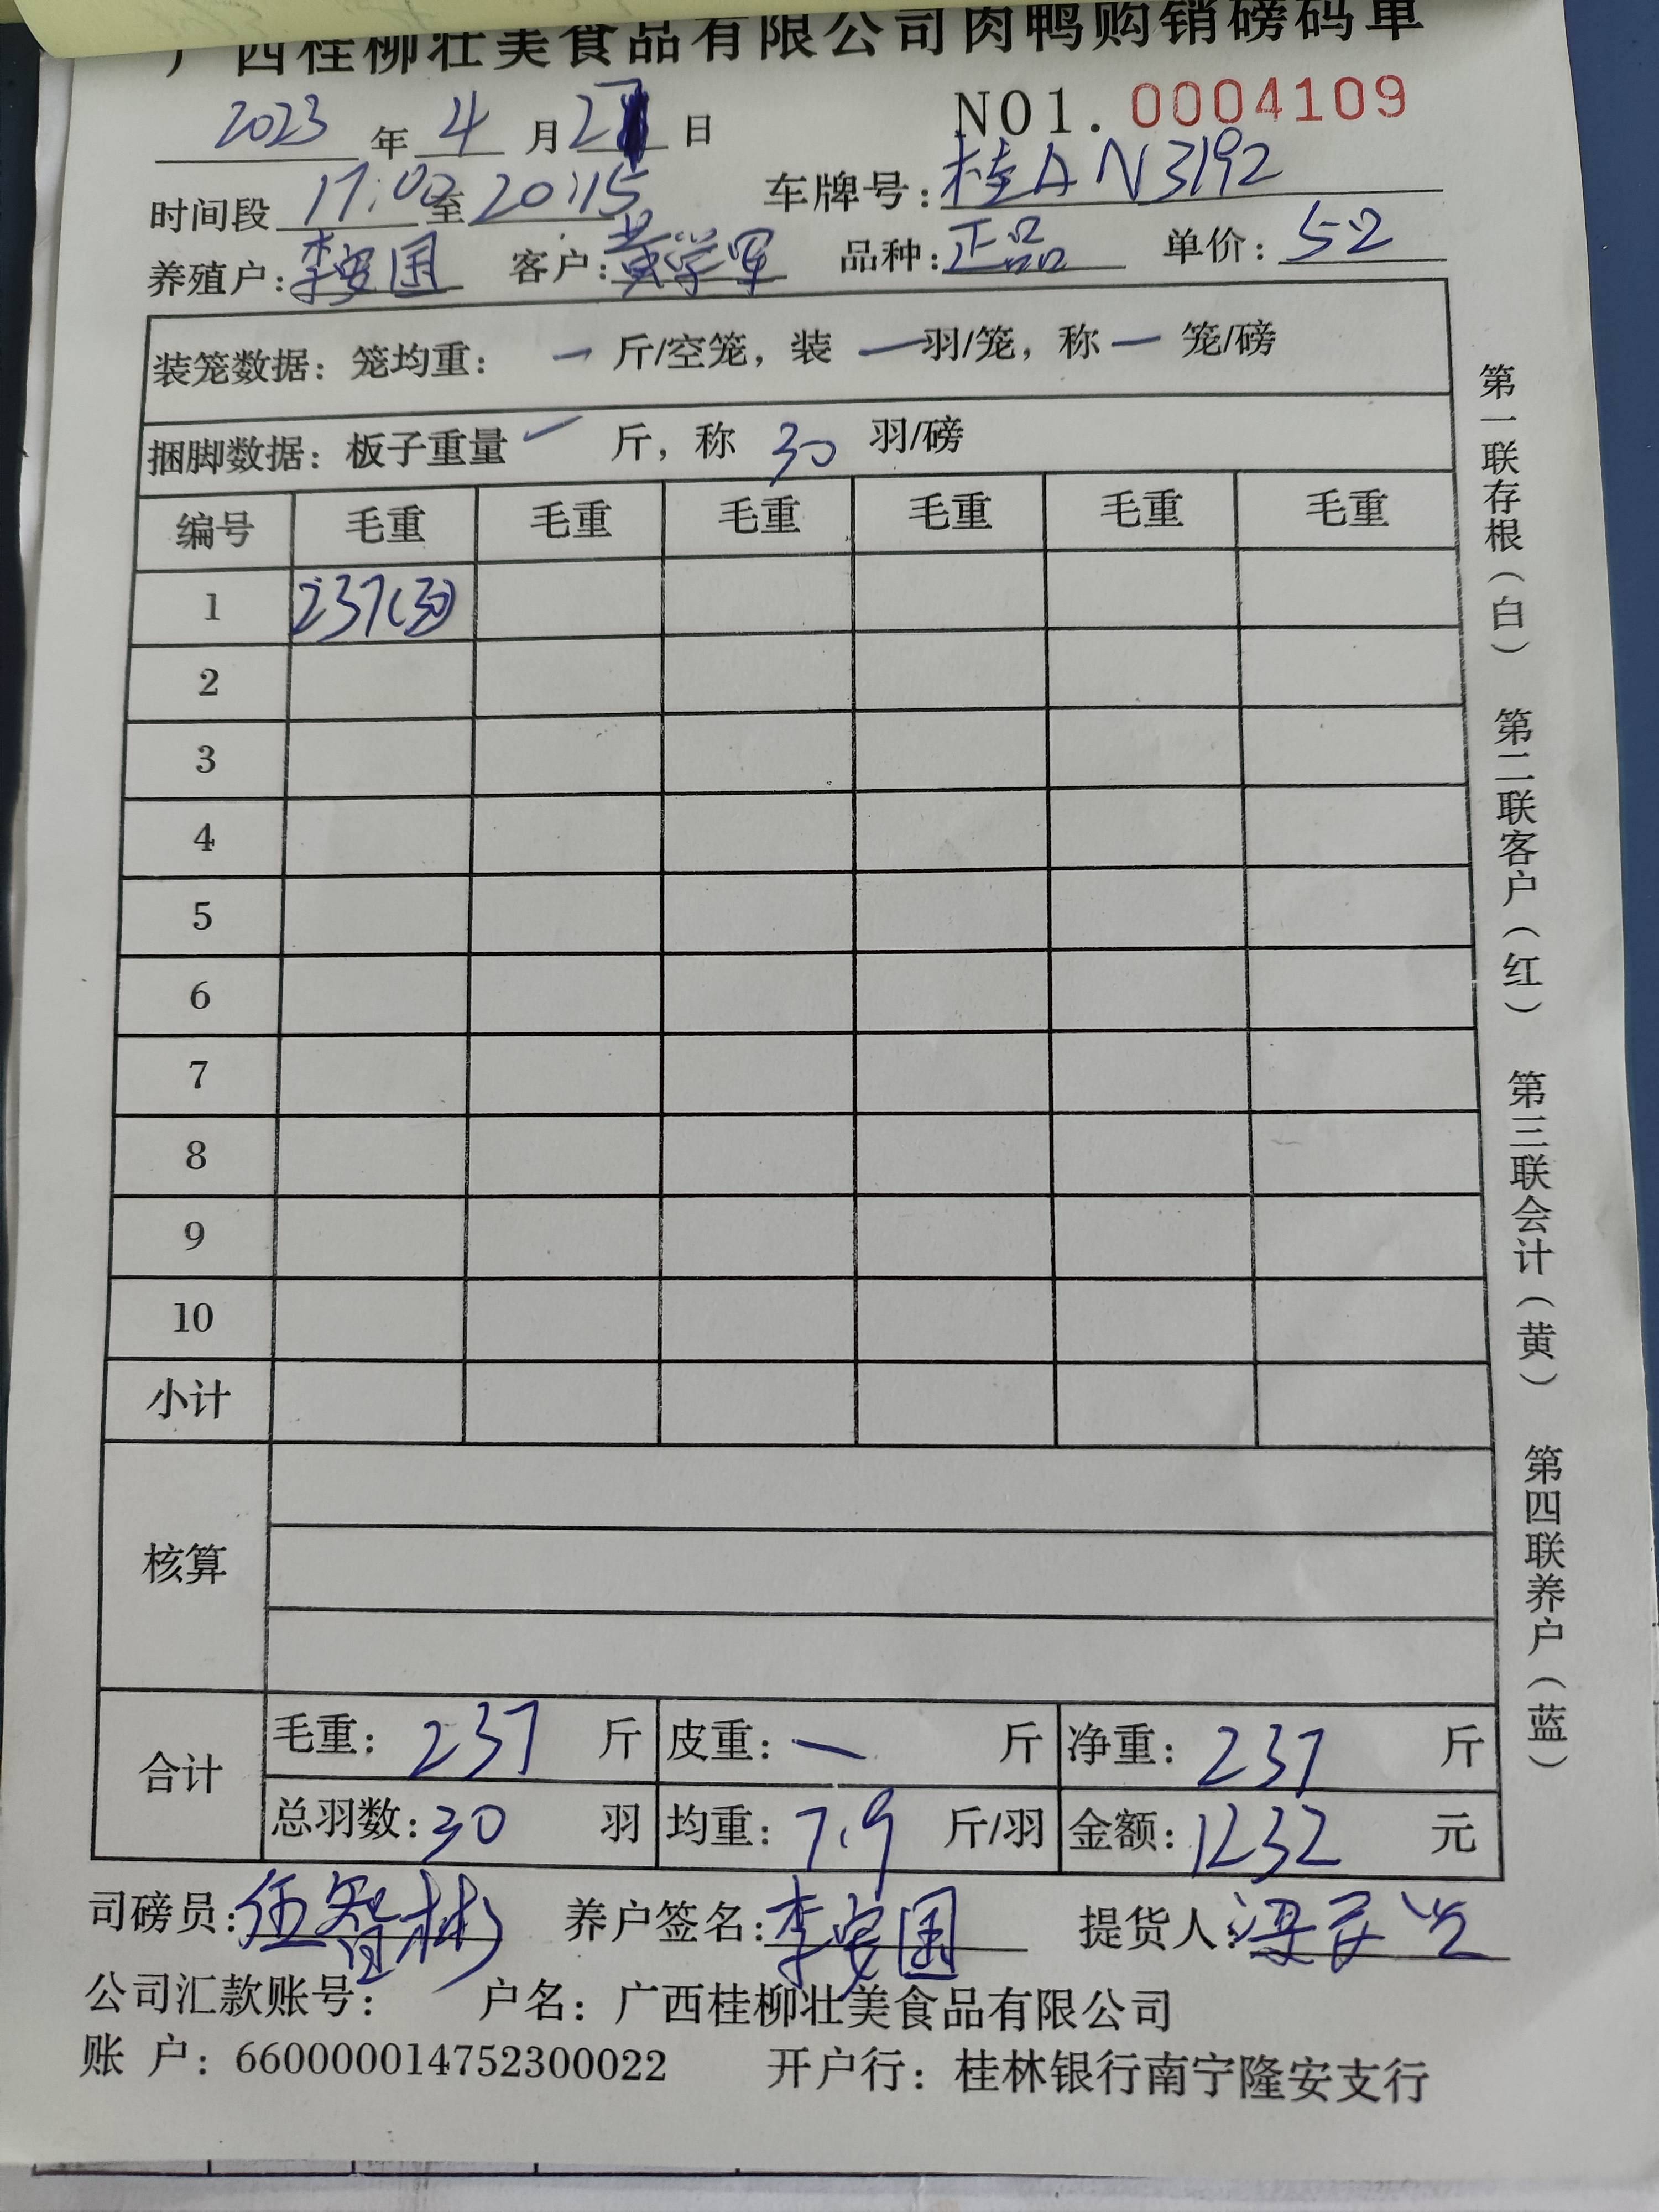 广西桂柳壮美食品有限公司肉鸭购销磅码单
2023 年 4 月 27 日 NO1. 0004109
时间段 17:02 至 20:15 车牌号: 桂A N3192
养殖户: 李安国 客户: 黄学军 品种: 正品 单价: 5.2
装笼数据: 笼均重: — 斤/空笼, 装 — 羽/笼, 称 — 笼/磅
捆脚数据: 板子重量 — 斤, 称 30 羽/磅
编号 毛重 毛重 毛重 毛重 毛重 毛重
1 237(30)
2
3
4
5
6
7
8
9
10
小计
核算
合计 毛重: 237 斤 皮重: — 斤 净重: 237 斤
总羽数: 30 羽 均重: 7.9 斤/羽 金额: 1232 元
司磅员: 伍智彬 养户签名: 李安国 提货人: 梁
公司汇款账号: 户名: 广西桂柳壮美食品有限公司
账 户: 660000014752300022 开户行: 桂林银行南宁隆安支行
第一联存根（白） 第二联客户（红） 第三联会计（黄） 第四联养户（蓝）